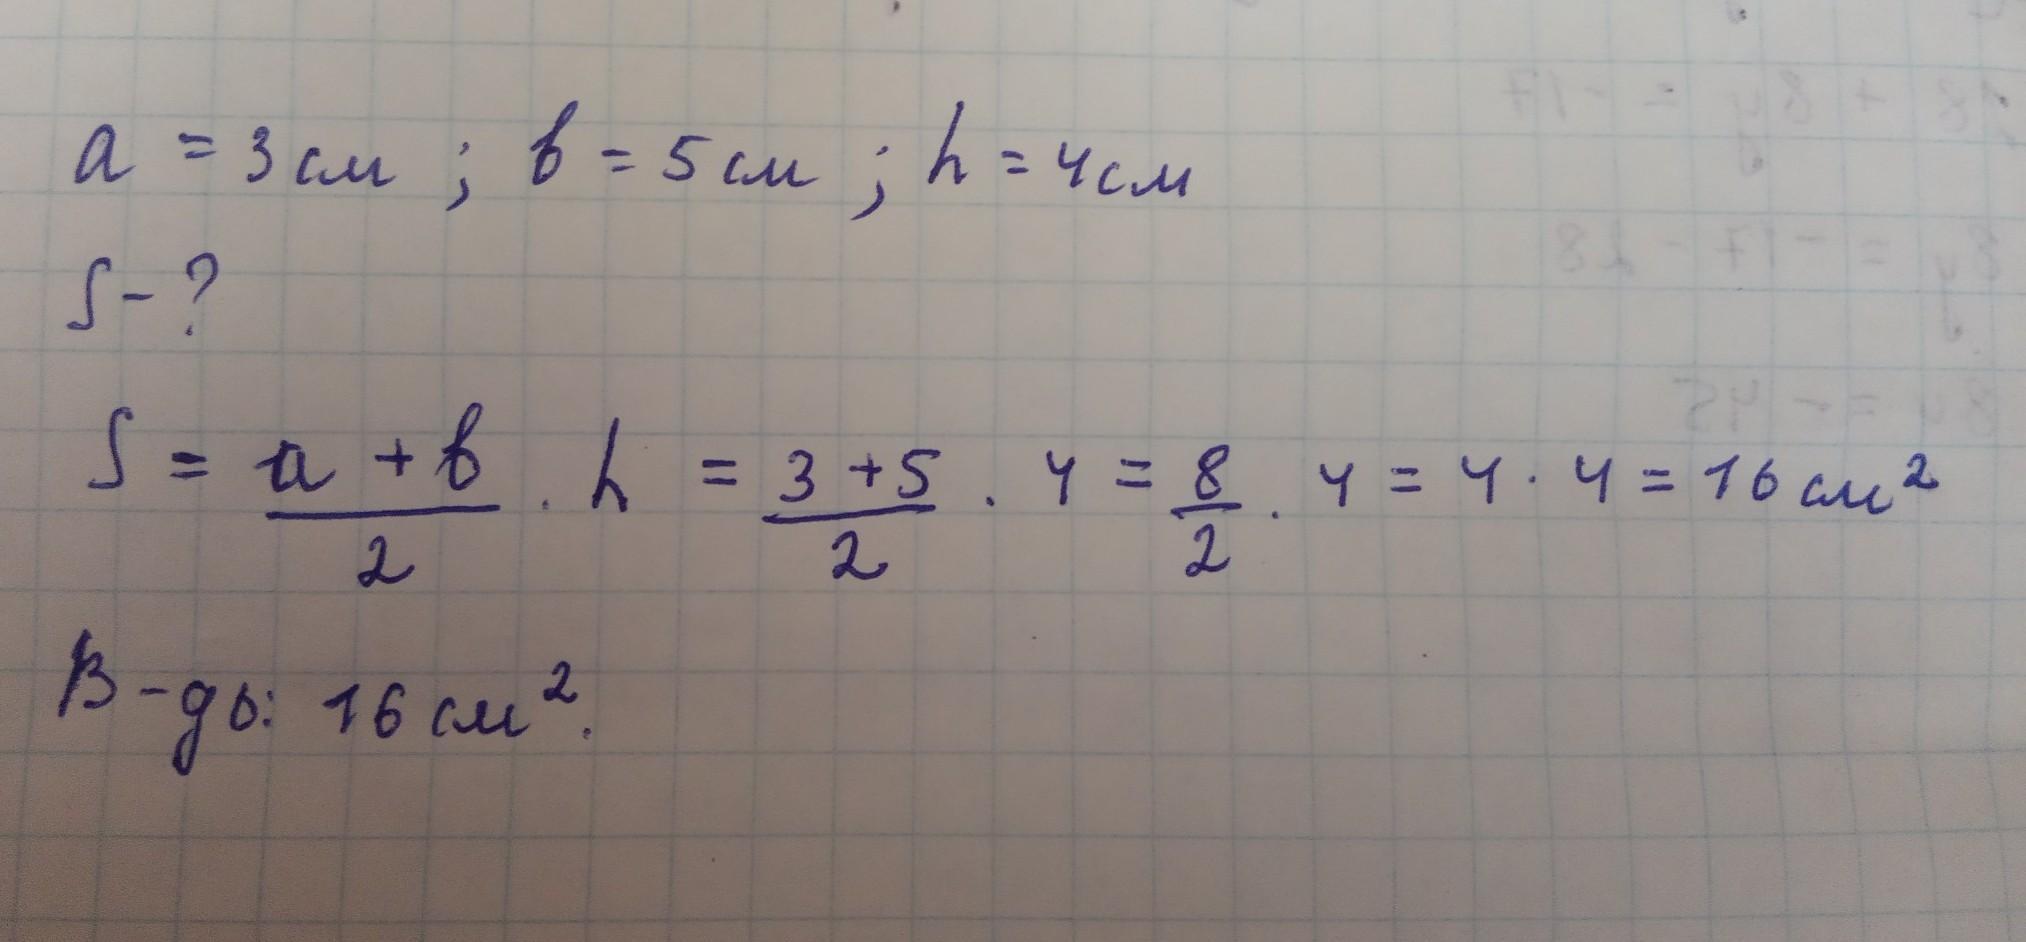 a = 3 см ; в = 5 см ; h = 4 см
S - ?
S = a + в / 2 · h = 3 + 5 / 2 · 4 = 8 / 2 · 4 = 4 · 4 = 16 см²
В-дь: 16 см².